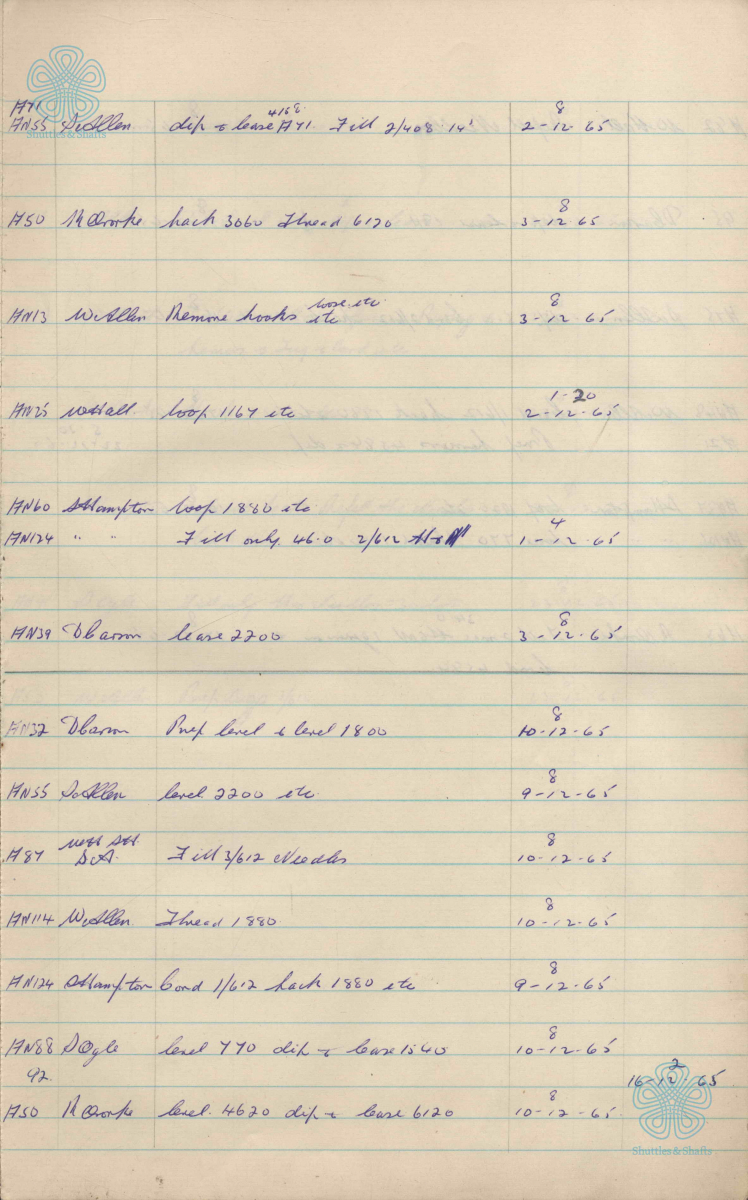 A71 8
AN55 S Allen dip & lease 4158 A71. Fill 2/408 14' 2-12-65
Shuttles & Shafts
A50 R Ororke hack 3060 Thread 6120 8 3-12-65
loose etc 8
AN13 W Allen Remove hooks etc 3-12-65
1-20
AN25 W Hall loop 1167 etc 2-12-65
AN60 S Hampton loop 1880 etc
4
AN124 " " Fill only 46-0 2/612 1-12-65
8
AN39 D Larson lease 2200 3-12-65
8
AN32 D Larson Prep level & level 1800 10-12-65
8
AN55 S Allen level 2200 etc 9-12-65
8
A87 S.A. Fill 3/612 Needles 10-12-65
8
AN114 W Allen Thread 1880 10-12-65
8
AN124 S Hampton Cond 1/612 hack 1880 etc 9-12-65
8
AN88 S Ogle level 770 dip & lease 1540 10-12-65
92. 2
16-12-65
8
A50 R Ororke level 4620 dip & lease 6120 10-12-65
Shuttles & Shafts